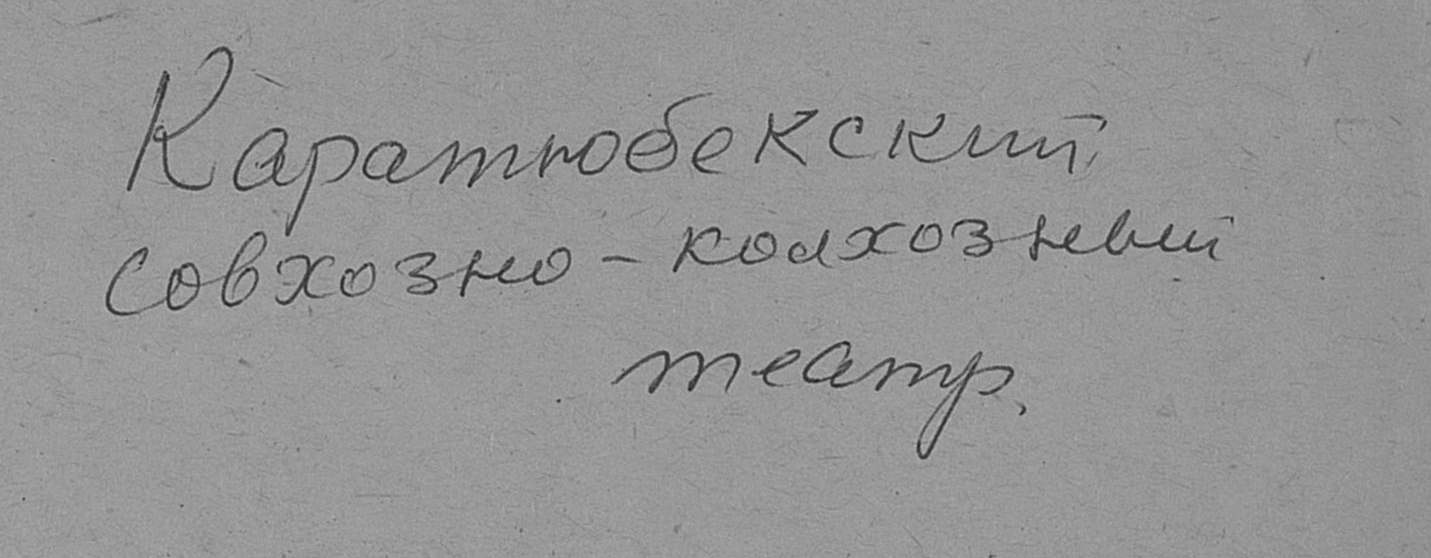 Каратюбекский
совхозно-колхозный
театр.